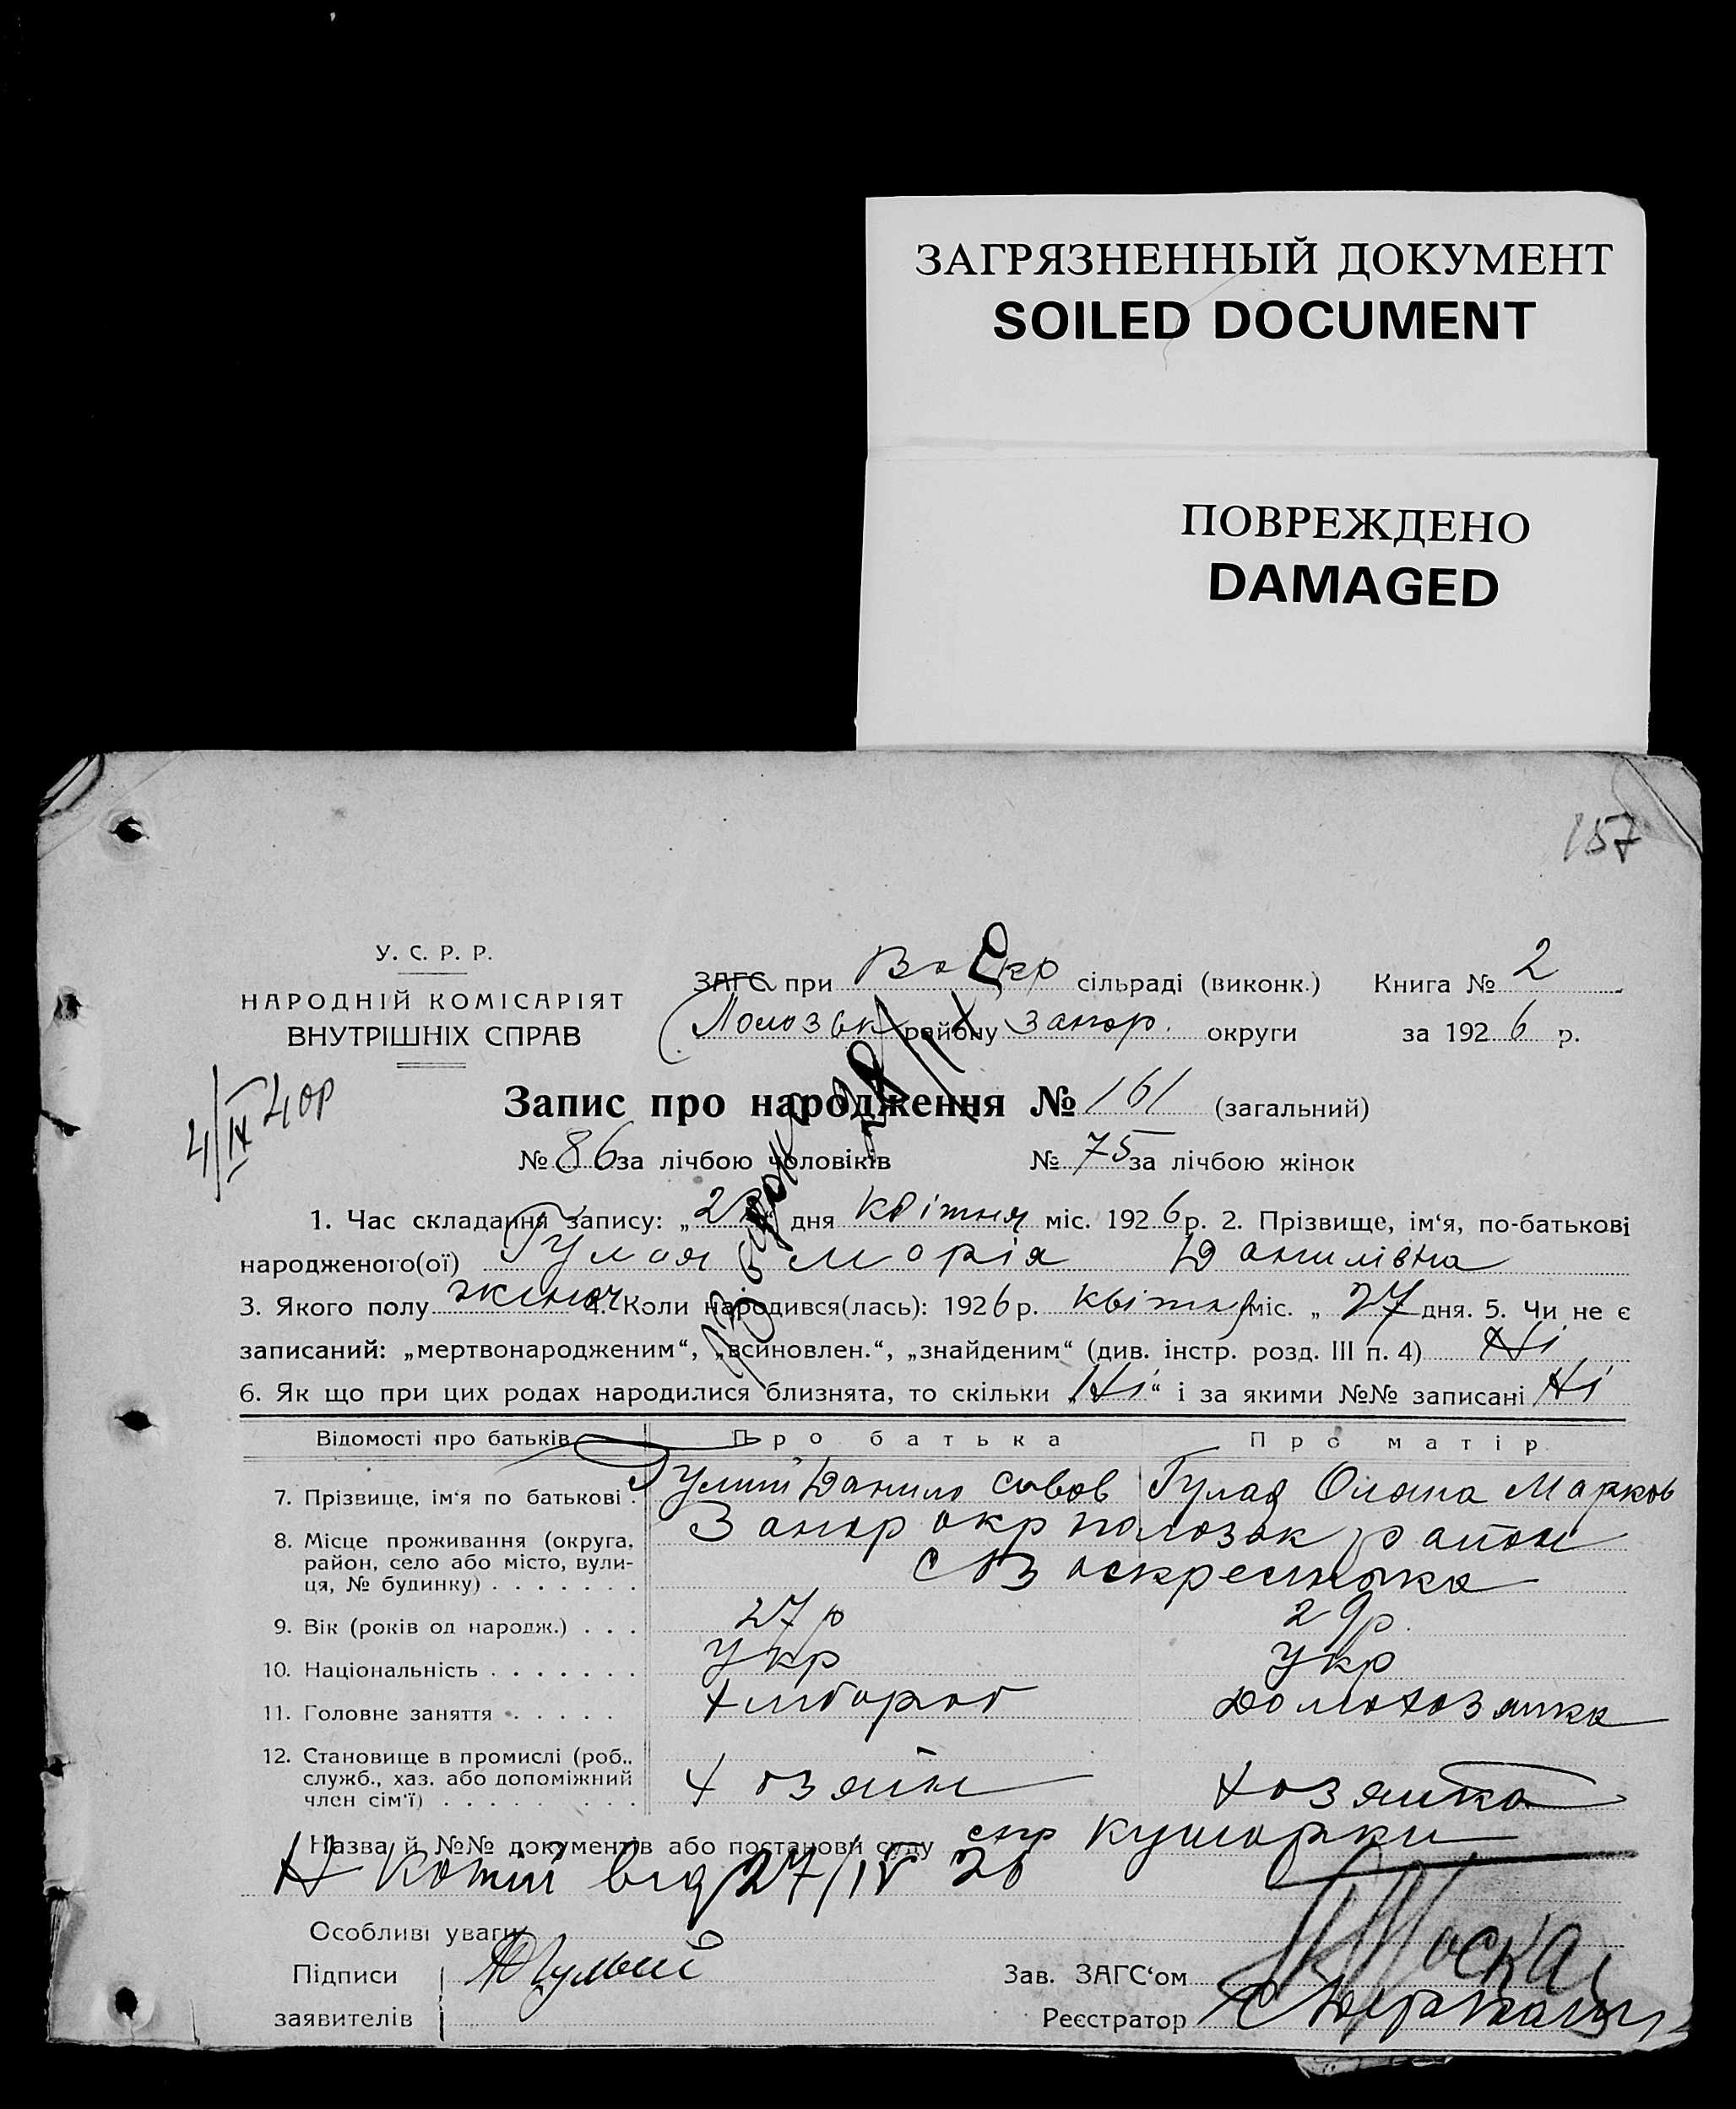 ЗАГРЯЗНЕННЫЙ ДОКУМЕНТ
SOILED DOCUMENT
ПОВРЕЖДЕНО
DAMAGED
157
У. С. Р. Р.
НАРОДНІЙ КОМІСАРІЯТ
ВНУТРІШНІХ СПРАВ
ЗАГС при Воскр сільраді (виконк.) Книга № 2
Полозьк району Запор. округи за 1926 р.
4/IX 40р
Запис про народження № 161 (загальний)
№ 86 за лічбою чоловіків № 75 за лічбою жінок
1. Час складання запису: „2 “ дня квітня міс. 1926 р. 2. Прізвище, ім‘я, по-батькові
народженого(ої) Гулая Марія Данилівна
3. Якого полу жіноч 4. Коли народився(лась): 1926 р. квітня міс. „ 27 дня. 5. Чи не є
записаний: „мертвонародженим“, „всиновлен.“, „знайденим“ (див. інстр. розд. III п. 4) Ні
6. Як що при цих родах народилися близнята, то скільки „Ні“ і за якими №№ записані Ні
Відомості про батьків Про батька Про матір
7. Прізвище, ім‘я по батькові . Гулий Данило Савов Гулая Оляна Марков
8. Місце проживання (округа, Запор окр полозьк район
район, село або місто, вули-
ця, № будинку) . . . . . . . с Воскресенка
9. Вік (років од народж.) . . . 27 р 29р.
10. Національність . . . . . . . Укр Укр
11. Головне заняття . . . . . Хлібороб Домохозяйка
12. Становище в промислі (роб.,
служб., хаз. або допоміжний Хозяїн Хозяйка
член сім‘ї) . . . . . . . . .
Назва й №№ документів або постанови суду спр Кушорки
від 27/IV 26
Особливі уваги
Підписи Гулый
Зав. ЗАГС‘ом
заявителів
Реєстратор